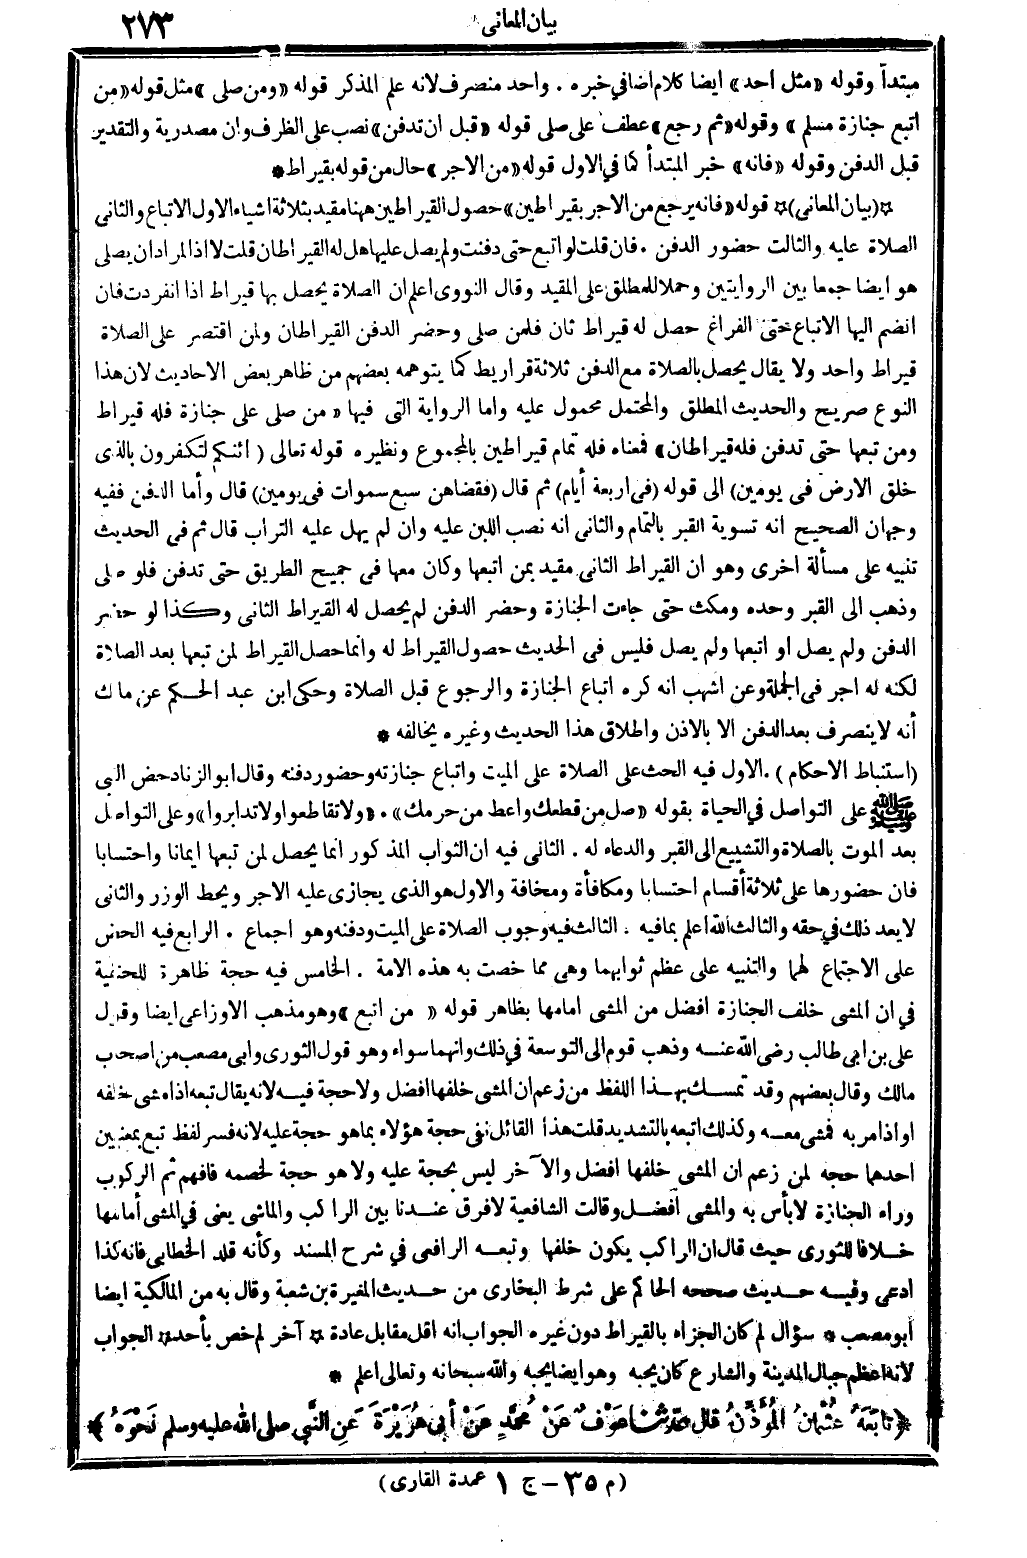 بيان المعانى
٢٧٣
مبتدأ وقوله «مثل احد» ايضا كلام اضافي خبره . واحد منصرف لانه علم المذكر قوله «ومن صلى» مثل قوله «من
اتبع جنازة مسلم» وقوله «ثم رجع» عطف على صلى قوله «قبل ان تدفن» نصب على الظرف وان مصدرية والتقدير
قبل الدفن وقوله «فانه» خبر المبتدأ كما في الاول قوله «من الاجر» حال من قوله بقيراط *
☆(بيان المعانى)☆ قوله «فانه يرجع من الاجر بقيراطين» حصول القيراطين ههنا مقيد بثلاثة اشياء الاول الاتباع والثانى
الصلاة عليه والثالث حضور الدفن . فان قلت لو اتبع حتى دفنت ولم يصل عليها هل له القيراطان قلت لا اذ المراد ان يصلى
هو ايضا جمعا بين الروايتين وحملا للمطلق على المقيد وقال النووى اعلم ان الصلاة يحصل بها قيراط اذا انفردت فان
انضم اليها الاتباع حتى الفراغ حصل له قيراط ثان فلمن صلى وحضر الدفن القيراطان ولمن اقتصر على الصلاة
قيراط واحد ولا يقال يحصل بالصلاة مع الدفن ثلاثة قراريط كما يتوهمه بعضهم من ظاهر بعض الاحاديث لان هذا
النوع صريح والحديث المطلق والمحتمل محمول عليه واما الرواية التى فيها «من صلى على جنازة فله قيراط
ومن تبعها حتى تدفن فله قيراطان» فمعناه فله تمام قيراطين بالمجموع ونظيره قوله تعالى (ائنكم لتكفرون بالذى
خلق الارض فى يومين) الى قوله (فى اربعة أيام) ثم قال (فقضاهن سبع سموات فى يومين) قال وأما الدفن ففيه
وجهان الصحيح انه تسوية القبر بالتمام والثانى انه نصب اللبن عليه وان لم يهل عليه التراب قال ثم فى الحديث
تنبيه على مسألة اخرى وهو ان القيراط الثانى مقيد بمن اتبعها وكان معها فى جميع الطريق حتى تدفن فلو صلى
وذهب الى القبر وحده ومكث حتى جاءت الجنازة وحضر الدفن لم يحصل له القيراط الثانى وكذا لو حضر
الدفن ولم يصل او اتبعها ولم يصل فليس فى الحديث حصول القيراط له وانما حصل القيراط لمن تبعها بعد الصلاة
لكنه له اجر فى الجملة وعن اشهب انه كره اتباع الجنازة والرجوع قبل الصلاة وحكى ابن عبد الحكم عن مالك
أنه لا ينصرف بعد الدفن الا بالاذن واطلاق هذا الحديث وغيره يخالفه *
(استنباط الاحكام) . الاول فيه الحث على الصلاة على الميت واتباع جنازته وحضور دفنه وقال ابو الزناد حض النبى
ﷺ على التواصل في الحياة بقوله «صل من قطعك واعط من حرمك» . «ولا تقاطعوا ولا تدابروا» وعلى التواصل
بعد الموت بالصلاة والتشييع الى القبر والدعاء له . الثانى فيه ان الثواب المذكور انما يحصل لمن تبعها ايمانا واحتسابا
فان حضورها على ثلاثة أقسام احتسابا ومكافأة ومخافة والاول هو الذى يجازى عليه الاجر ويحط الوزر والثانى
لا يعد ذلك في حقه والثالث الله اعلم بما فيه . الثالث فيه وجوب الصلاة على الميت ودفنه وهو اجماع . الرابع فيه الحض
على الاجتماع لهما والتنبيه على عظم ثوابهما وهى مما خصت به هذه الامة . الخامس فيه حجة ظاهرة للحنفية
في ان المشى خلف الجنازة افضل من المشى امامها بظاهر قوله «من اتبع» وهو مذهب الاوزاعى ايضا وقول
على بن ابى طالب رضى الله عنه وذهب قوم الى التوسعة في ذلك وانهما سواء وهو قول الثورى وابى مصعب من اصحاب
مالك وقال بعضهم وقد تمسك بهذا اللفظ من زعم ان المشى خلفها افضل ولا حجة فيه لانه يقال تبعه اذا مشى خلفه
او اذا مر به فمشى معه وكذلك اتبعه بالتشديد قلت هذا القائل نفى حجة هؤلاء بما هو حجة عليه لانه فسر لفظ تبع بمعنيين
احدهما حجة لمن زعم ان المشى خلفها افضل والآخر ليس بحجة عليه ولا هو حجة لخصمه فافهم ثم الركوب
وراء الجنازة لا بأس به والمشى أفضل وقالت الشافعية لا فرق عندنا بين الراكب والماشى يعنى في المشى أمامها
خلافا للثورى حيث قال ان الراكب يكون خلفها وتبعه الرافعى في شرح المسند وكأنه قلد الخطابى فانه كذا
ادعى وفيه حديث صححه الحاكم على شرط البخارى من حديث المغيرة بن شعبة وقال به من المالكية ايضا
أبو مصعب * سؤال لم كان الجزاء بالقيراط دون غيره الجواب انه اقل مقابل عادة ☆ آخر لم خص بأحد ☆ الجواب
لانه اعظم جبال المدينة والشارع كان يحبه وهو ايضا يحبه والله سبحانه وتعالى اعلم *
﴿تَابَعَهُ عُثْمَانُ المُؤَذِّنُ قال حدثنا عَوْفٌ عَنْ مُحَمَّدٍ عَنْ أَبِى هُرَيْرَةَ عَنِ النَّبِى صلى الله عليه وسلم نَحْوَهُ﴾
(م ٣٥ – ج ١ عمدة القارى)